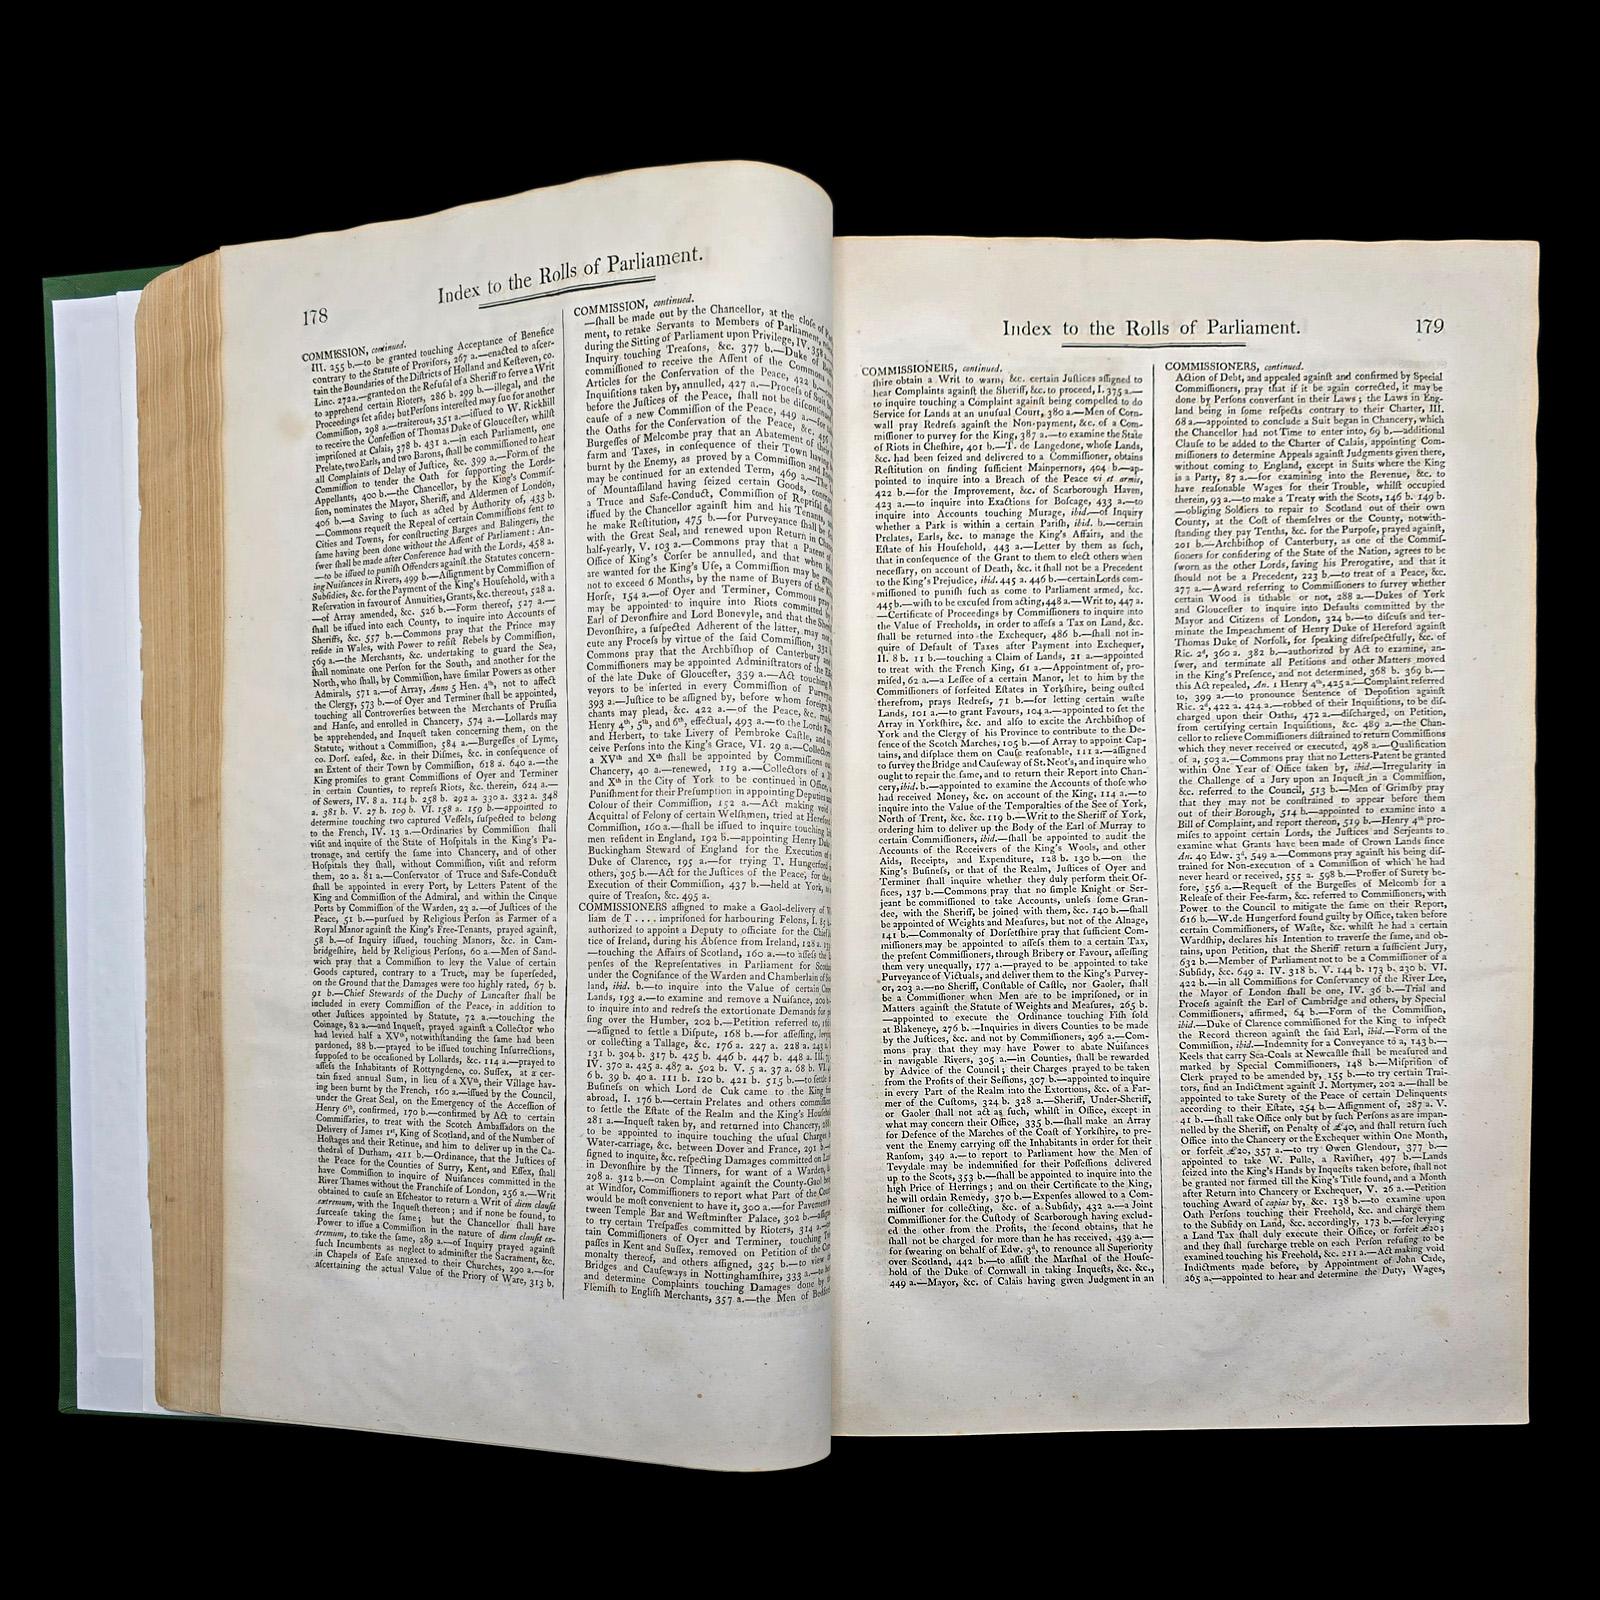 178
Index to the Rolls of Parliament.
COMMISSION, continued.
III. 255 b.—to be granted touching Acceptance of Benefice
contrary to the Statute of Proviſors, 267 a.—enacted to aſcer-
tain the Boundaries of the Diſtricts of Holland and Keſteven, co.
Linc. 272a.—granted on the Refuſal of a Sheriff to ſerve a Writ
to apprehend certain Rioters, 286 b. 299 b.—illegal, and the
Proceedings ſet aſide; but Perſons intereſted may ſue for another
Commiſſion, 298 a.—traiterous, 351 a.—iſſued to W. Rickhill
to receive the Confeſſion of Thomas Duke of Glouceſter, whilſt
impriſoned at Calais, 378 b. 431 a.—in each Parliament, one
Prelate, two Earls, and two Barons, ſhall be commiſſioned to hear
all Complaints of Delay of Juſtice, &c. 399 a.—Form of the
Commiſſion to tender the Oath for ſupporting the Lords-
Appellants, 400 b.—the Chancellor, by the King's Commiſ-
ſion, nominates the Mayor, Sheriff, and Aldermen of London,
406 b.—a Saving to ſuch as acted by Authority of, 433 b.
—Commons requeſt the Repeal of certain Commiſſions ſent to
Cities and Towns, for conſtructing Barges and Balingers, the
ſame having been done without the Aſſent of Parliament: An-
ſwer ſhall be made after Conference had with the Lords, 458 a.
—to be iſſued to puniſh Offenders againſt the Statutes concern-
ing Nuiſances in Rivers, 499 b.—Aſſignment by Commiſſion of
Subſidies, &c. for the Payment of the King's Houſehold, with a
Reſervation in favour of Annuities, Grants, &c. thereout, 528 a.
—of Array amended, &c. 526 b.—Form thereof, 527 a.—
ſhall be iſſued into each County, to inquire into Accounts of
Sheriffs, &c. 557 b.—Commons pray that the Prince may
reſide in Wales, with Power to reſiſt Rebels by Commiſſion,
569 a.—the Merchants, &c. undertaking to guard the Sea,
ſhall nominate one Perſon for the South, and another for the
North, who ſhall, by Commiſſion, have ſimilar Powers as other
Admirals, 571 a.—of Array, Anno 5 Hen. 4th, not to affect
the Clergy, 573 b.—of Oyer and Terminer ſhall be appointed,
touching all Controverſies between the Merchants of Pruſſia
and Hanſe, and enrolled in Chancery, 574 a.—Lollards may
be apprehended, and Inqueſt taken concerning them, on the
Statute, without a Commiſſion, 584 a.—Burgeſſes of Lyme,
co. Dorſ. eaſed, &c. in their Diſmes, &c. in conſequence of
an Extent of their Town by Commiſſion, 618 a. 640 a.—the
King promiſes to grant Commiſſions of Oyer and Terminer
in certain Counties, to repreſs Riots, &c. therein, 624 a.—
of Sewers, IV. 8 a. 114 b. 258 b. 292 a. 330 a. 332 a. 348
a. 381 b. V. 27 b. 109 b. VI. 158 a. 159 b.—appointed to
determine touching two captured Veſſels, ſuſpected to belong
to the French, IV. 13 a.—Ordinaries by Commiſſion ſhall
viſit and inquire of the State of Hoſpitals in the King's Pa-
tronage, and certify the ſame into Chancery, and of other
Hoſpitals they ſhall, without Commiſſion, viſit and reform
them, 20 a. 81 a.—Conſervator of Truce and Safe-Conduct
ſhall be appointed in every Port, by Letters Patent of the
King and Commiſſion of the Admiral, and within the Cinque
Ports by Commiſſion of the Warden, 23 a.—of Juſtices of the
Peace, 51 b.—purſued by Religious Perſon as Farmer of a
Royal Manor againſt the King's Free-Tenants, prayed againſt,
58 b.—of Inquiry iſſued, touching Manors, &c. in Cam-
bridgeſhire, held by Religious Perſons, 60 a.—Men of Sand-
wich pray that a Commiſſion to levy the Value of certain
Goods captured, contrary to a Truce, may be ſuperſeded,
on the Ground that the Damages were too highly rated, 67 b.
91 b.—Chief Stewards of the Duchy of Lancaſter ſhall be
included in every Commiſſion of the Peace, in addition to
other Juſtices appointed by Statute, 72 a.—touching the
Coinage, 82 a.—and Inqueſt, prayed againſt a Collector who
had levied half a XVth, notwithſtanding the ſame had been
pardoned, 88 b.—prayed to be iſſued touching Inſurrections,
ſuppoſed to be occaſioned by Lollards, &c. 114 a.—prayed to
aſſeſs the Inhabitants of Rottyngdene, co. Suſſex, at a cer-
tain fixed annual Sum, in lieu of a XVth, their Village hav-
ing been burnt by the French, 160 a.—iſſued by the Council,
under the Great Seal, on the Emergency of the Acceſſion of
Henry 6th, confirmed, 170 b.—confirmed by Act to certain
Commiſſaries, to treat with the Scotch Ambaſſadors on the
Delivery of James 1ſt, King of Scotland, and of the Number of
Hoſtages and their Retinue, and him to deliver up in the Ca-
thedral of Durham, 211 b.—Ordinance, that the Juſtices of
the Peace for the Counties of Surry, Kent, and Eſſex, ſhall
have Commiſſion to inquire of Nuiſances committed in the
River Thames without the Franchiſe of London, 256 a.—Writ
obtained to cauſe an Eſcheator to return a Writ of diem clauſit
extremum, with the Inqueſt thereupon; and if none be found, to
ſurceaſe taking the ſame; but the Chancellor ſhall have
Power to iſſue a Commiſſion in the nature of diem clauſit ex-
tremum, to take the ſame, 289 a.—of Inquiry prayed againſt
ſuch Incumbents as neglect to adminiſter the Sacrament, &c.
in Chapels of Eaſe annexed to their Churches, 290 a.—for
aſcertaining the actual Value of the Priory of Ware, 313 b.
COMMISSION, continued.
—ſhall be made out by the Chancellor, at the cloſe of
ment, to retake Servants to Members of Parliament,
during the Sitting of Parliament upon Privilege, IV. 358
Inquiry touching Treaſons, &c. 377 b.—Duke of
commiſſioned to receive the Aſſent of the Commons
Articles for the Conſervation of the Peace, 422 b.
Inquiſitions taken by, annulled, 427 a.—Proceſs of Suit
before the Juſtices of the Peace, ſhall not be diſcontin
cauſe of a new Commiſſion of the Peace, 449 a.—for
the Oaths for the Conſervation of the Peace, &c. 456
Burgeſſes of Melcombe pray that an Abatement of their
farm and Taxes, in conſequence of their Town having
burnt by the Enemy, as proved by a Commiſſion and
may be continued for an extended Term, 469 a.—The
of Mountaſiland having ſeized certain Goods,
a Truce and Safe-Conduct, Commiſſion of Repriſal
iſſued by the Chancellor againſt him and his Tenants,
he make Reſtitution, 475 b.—for Purveyance ſhall be
with the Great Seal, and renewed upon Return in
half-yearly, V. 103 a.—Commons pray that a Patent of
Office of King's Corſer be annulled, and that when
are wanted for the King's Uſe, a Commiſſion may be
not to exceed 6 Months, by the name of Buyers of the
Horſe, 154 a.—of Oyer and Terminer, Commons pray
may be appointed to inquire into Riots committed
Earl of Devonſhire and Lord Bonevyle, and that the
Devonſhire, a ſuſpected Adherent of the latter, may
cute any Proceſs by virtue of the ſaid Commiſſion, 332
Commons pray that the Archbiſhop of Canterbury and
Commiſſioners may be appointed Adminiſtrators of the
of the late Duke of Glouceſter, 339 a.—Act touching
veyors to be inſerted in every Commiſſion of Purvey
393 a.—Juſtice to be aſſigned by, before whom foreign
chants may plead, &c. 422 a.—of the Peace, &c.
Henry 4th, 5th, and 6th, effectual, 493 a.—to the Lords
and Herbert, to take Livery of Pembroke Caſtle, and
ceive Perſons into the King's Grace, VI. 29 a.—Collectors
a XVth and Xth ſhall be appointed by Commiſſions
Chancery, 40 a.—renewed, 119 a.—Collectors of a
and Xth in the City of York to be continued in Office,
Puniſhment for their Preſumption in appointing Deputies
Colour of their Commiſſion, 152 a.—Act making void
Acquittal of Felony of certain Welſhmen, tried at Hereford
Commiſſion, 160 a.—ſhall be iſſued to inquire touching
men reſident in England, 192 b.—appointing Henry Duke
Buckingham Steward of England for the Execution of
Duke of Clarence, 195 a.—for trying T. Hungerford
others, 305 b.—Act for the Juſtices of the Peace, for the
Execution of their Commiſſion, 437 b.—held at York, to
quire of Treaſon, &c. 495 a.
COMMISSIONERS aſſigned to make a Gaol-delivery of
liam de T .... impriſoned for harbouring Felons, I. 85 b.
authorized to appoint a Deputy to officiate for the Chief
tice of Ireland, during his Abſence from Ireland, 128 a.
—touching the Affairs of Scotland, 160 a.—to aſſeſs the
penſes of the Repreſentatives in Parliament for Scotland
under the Cogniſance of the Warden and Chamberlain of
land, ibid. b.—to inquire into the Value of certain
Lands, 193 a.—to examine and remove a Nuiſance, 200 b.
to inquire into and redreſs the extortionate Demands for
ſing over the Humber, 202 b.—Petition referred to,
—aſſigned to ſettle a Diſpute, 168 b.—for aſſeſſing,
or collecting a Tallage, &c. 176 a. 227 a. 228 a. 243
131 b. 304 b. 317 b. 425 b. 446 b. 447 b. 448 a. III.
IV. 370 a. 425 a. 487 a. 502 b. V. 5 a. 37 a. 68 b. VI.
6 b. 39 b. 40 a. 111 b. 120 b. 421 b. 515 b.—to ſettle
Buſineſs on which Lord de Cuk came to the King
abroad, I. 176 b.—certain Prelates and others commiſſion
to ſettle the Eſtate of the Realm and the King's Houſehold
281 a.—Inqueſt taken by, and returned into Chancery,
to be appointed to inquire touching the uſual Charges
Water-carriage, &c. between Dover and France, 291 b.
ſigned to inquire, &c. reſpecting Damages committed on
in Devonſhire by the Tinners, for want of a Warden,
298 a. 312 b.—on Complaint againſt the County-Gaol
at Windſor, Commiſſioners to report what Part of the
would be moſt convenient to have it, 300 a.—for Pavement
tween Temple Bar and Weſtminſter Palace, 302 b.—
to try certain Treſpaſſes committed by Rioters, 314 a.
tain Commiſſioners of Oyer and Terminer, touching
paſſes in Kent and Suſſex, removed on Petition of the
monalty thereof, and others aſſigned, 325 b.—to view
Bridges and Cauſeways in Nottinghamſhire, 333 a.—
and determine Complaints touching Damages done by
Flemiſh to Engliſh Merchants, 357 a.—the Men of
Index to the Rolls of Parliament.
179
COMMISSIONERS, continued.
ſhire obtain a Writ to warn, &c. certain Juſtices aſſigned to
hear Complaints againſt the Sheriff, &c. to proceed, I. 375 a.—
to inquire touching a Complaint againſt being compelled to do
Service for Lands at an unuſual Court, 380 a.—Men of Corn-
wall pray Redreſs againſt the Non-payment, &c. of a Com-
miſſioner to purvey for the King, 387 a.—to examine the State
of Riots in Cheſhire, 401 b.—T. de Langedone, whoſe Lands,
&c. had been ſeized and delivered to a Commiſſioner, obtains
Reſtitution on finding ſufficient Mainpernors, 404 b.—ap-
pointed to inquire into a Breach of the Peace vi et armis,
422 b.—for the Improvement, &c. of Scarborough Haven,
423 a.—to inquire into Exactions for Boſcage, 433 a.—to
inquire into Accounts touching Murage, ibid.—of Inquiry
whether a Park is within a certain Pariſh, ibid. b.—certain
Prelates, Earls, &c. to manage the King's Affairs, and the
Eſtate of his Houſehold, 443 a.—Letter by them as ſuch,
that in conſequence of the Grant to them to elect others when
neceſſary, on account of Death, &c. it ſhall not be a Precedent
to the King's Prejudice, ibid. 445 a. 446 b.—certain Lords com-
miſſioned to puniſh ſuch as come to Parliament armed, &c.
445 b.—wiſh to be excuſed from acting, 448 a.—Writ to, 447 a.
—Certificate of Proceedings by Commiſſioners to inquire into
the Value of Freeholds, in order to aſſeſs a Tax on Land, &c.
ſhall be returned into the Exchequer, 486 b.—ſhall not in-
quire of Default of Taxes after Payment into Exchequer,
II. 8 b. 11 b.—touching a Claim of Lands, 21 a.—appointed
to treat with the French King, 61 a.—Appointment of, pro-
miſed, 62 a.—a Leſſee of a certain Manor, let to him by the
Commiſſioners of forfeited Eſtates in Yorkſhire, being ouſted
therefrom, prays Redreſs, 71 b.—for letting certain waſte
Lands, 101 a.—to grant Favours, 104 a.—appointed to ſet the
Array in Yorkſhire, &c. and alſo to excite the Archbiſhop of
York and the Clergy of his Province to contribute to the De-
fence of the Scotch Marches, 105 b.—of Array to appoint Cap-
tains, and diſplace them on Cauſe reaſonable, 111 a.—aſſigned
to ſurvey the Bridge and Cauſeway of St. Neot's, and inquire who
ought to repair the ſame, and to return their Report into Chan-
cery, ibid.—appointed to examine the Accounts of thoſe who
had received Money, &c. on account of the King, 114 a.—to
inquire into the Value of the Temporalties of the See of York,
North of Trent, &c. &c. 119 b.—Writ to the Sheriff of York,
ordering him to deliver up the Body of the Earl of Murray to
certain Commiſſioners, ibid.—ſhall be appointed to audit the
Accounts of the Receivers of the King's Wools, and other
Aids, Receipts, and Expenditure, 128 b. 130 b.—on the
King's Buſineſs, or that of the Realm, Juſtices of Oyer and
Terminer ſhall inquire whether they duly perform their Of-
fices, 137 b.—Commons pray that no ſimple Knight or Ser-
jeant be commiſſioned to take Accounts, unleſs ſome Gran-
dee, with the Sheriff, be joined with them, &c. 140 b.—ſhall
be appointed of Weights and Meaſures, but not of the Alnage,
141 b.—Commonalty of Dorſetſhire pray that ſufficient Com-
miſſioners may be appointed to aſſeſs them to a certain Tax,
the preſent Commiſſioners, through Bribery or Favour, aſſeſſing
them very unequally, 177 a.—prayed to be appointed to take
Purveyance of Victuals, and deliver them to the King's Purvey-
or, 203 a.—no Sheriff, Conſtable of Caſtle, nor Gaoler, ſhall
be a Commiſſioner when Men are to be impriſoned, or in
Matters againſt the Statute of Weights and Meaſures, 265 b.
—appointed to execute the Ordinance touching Fiſh ſold
at Blakeneye, 276 b.—Inquiries in divers Counties to be made
by the Juſtices, &c. and not by Commiſſioners, 296 a.—Com-
mons pray that they may have Power to abate Nuiſances
in navigable Rivers, 305 a.—in Counties, ſhall be rewarded
by Advice of the Council; their Charges prayed to be taken
from the Profits of their Seſſions, 307 b.—appointed to inquire
in every Part of the Realm into the Extortions, &c. of a Far-
mer of the Cuſtoms, 324 b. 328 a.—Sheriff, Under-Sheriff,
or Gaoler ſhall not act as ſuch, whilſt in Office, except in
what may concern their Office, 335 b.—ſhall make an Array
for Defence of the Marches of the Coaſt of Yorkſhire, to pre-
vent the Enemy carrying off the Inhabitants in order for their
Ranſom, 349 a.—to report to Parliament how the Men of
Tevydale may be indemnified for their Poſſeſſions delivered
up to the Scots, 353 b.—ſhall be appointed to inquire into the
high Price of Herrings; and on their Certificate to the King,
he will ordain Remedy, 370 b.—Expenſes allowed to a Com-
miſſioner for collecting, &c. of a Subſidy, 432 a.—a Joint
Commiſſioner for the Cuſtody of Scarborough having exclud-
ed the other from the Profits, the ſecond obtains, that he
ſhall not be charged for more than he has received, 439 a.—
for ſwearing on behalf of Edw. 3d, to renounce all Superiority
over Scotland, 442 b.—to aſſiſt the Marſhal of the Houſe-
hold of the Duke of Cornwall in taking Inqueſts, &c. &c.,
449 a.—Mayor, &c. of Calais having given Judgment in an
COMMISSIONERS, continued.
Action of Debt, and appealed againſt and confirmed by Special
Commiſſioners, pray that if it be again corrected, it may be
done by Perſons converſant in their Laws; the Laws in Eng-
land being in ſome reſpects contrary to their Charter, III.
68 a.—appointed to conclude a Suit begun in Chancery, which
the Chancellor had not Time to enter into, 69 b.—additional
Clauſe to be added to the Charter of Calais, appointing Com-
miſſioners to determine Appeals againſt Judgments given there,
without coming to England, except in Suits where the King
is a Party, 87 a.—for examining into the Revenue, &c. to
have reaſonable Wages for their Trouble, whilſt occupied
therein, 93 a.—to make a Treaty with the Scots, 146 b. 149 b.
—obliging Soldiers to repair to Scotland out of their own
County, at the Coſt of themſelves or the County, notwith-
ſtanding they pay Tenths, &c. for the Purpoſe, prayed againſt,
201 b.—Archbiſhop of Canterbury, as one of the Commiſ-
ſioners for conſidering of the State of the Nation, agrees to be
ſworn as the other Lords, ſaving his Prerogative, and that it
ſhould not be a Precedent, 223 b.—to treat of a Peace, &c.
277 a.—Award referring to Commiſſioners to ſurvey whether
certain Wood is tithable or not, 288 a.—Dukes of York
and Glouceſter to inquire into Defaults committed by the
Mayor and Citizens of London, 324 b.—to diſcuſs and ter-
minate the Impeachment of Henry Duke of Hereford againſt
Thomas Duke of Norfolk, for ſpeaking diſreſpectfully, &c. of
Ric. 2d, 360 a. 382 b.—authorized by Act to examine, an-
ſwer, and terminate all Petitions and other Matters moved
in the King's Preſence, and not determined, 368 b. 369 b.—
this Act repealed, An. 1 Henry 4th, 425 a.—Complaint referred
to, 399 a.—to pronounce Sentence of Depoſition againſt
Ric. 2d, 422 a. 424 a.—robbed of their Inquiſitions, to be diſ-
charged upon their Oaths, 472 a.—diſcharged, on Petition,
from certifying certain Inquiſitions, &c. 489 a.—the Chan-
cellor to relieve Commiſſioners diſtrained to return Commiſſions
which they never received or executed, 498 a.—Qualification
of a, 503 a.—Commons pray that no Letters-Patent be granted
within One Year of Office taken by, ibid.—Irregularity in
the Challenge of a Jury upon an Inqueſt in a Commiſſion,
&c. referred to the Council, 513 b.—Men of Grimſby pray
that they may not be conſtrained to appear before them
out of their Borough, 514 b.—appointed to examine into a
Bill of Complaint, and report thereon, 519 b.—Henry 4th pro-
miſes to appoint certain Lords, the Juſtices and Serjeants to
examine what Grants have been made of Crown Lands ſince
An. 40 Edw. 3d, 549 a.—Commons pray againſt his being diſ-
trained for Non-execution of a Commiſſion of which he had
never heard or received, 555 a. 598 b.—Proffer of Surety be-
fore, 556 a.—Requeſt of the Burgeſſes of Melcomb for a
Releaſe of their Fee-farm, &c. referred to Commiſſioners, with
Power to the Council to mitigate the ſame on their Report,
616 b.—W. de Hungerford found guilty by Office, taken before
certain Commiſſioners, of Waſte, &c. whilſt he had a certain
Wardſhip, declares his Intention to traverſe the ſame, and ob-
tains, upon Petition, that the Sheriff return a ſufficient Jury,
632 b.—Member of Parliament not to be a Commiſſioner of a
Subſidy, &c. 649 a. IV. 318 b. V. 144 b. 173 b. 230 b. VI.
422 b.—in all Commiſſions for Conſervancy of the River Lee,
the Mayor of London ſhall be one, IV. 36 b.—Trial and
Proceſs againſt the Earl of Cambridge and others, by Special
Commiſſioners, affirmed, 64 b.—Form of the Commiſſion,
ibid.—Duke of Clarence commiſſioned for the King to inſpect
the Record thereon againſt the ſaid Earl, ibid.—Form of the
Commiſſion, ibid.—Indemnity for a Conveyance to a, 143 b.—
Keels that carry Sea-Coals at Newcaſtle ſhall be meaſured and
marked by Special Commiſſioners, 148 b.—Miſpriſion of
Clerk prayed to be amended by, 155 b.—to try certain Trai-
tors, find an Indictment againſt J. Mortymer, 202 a.—ſhall be
appointed to take Surety of the Peace of certain Delinquents
according to their Eſtate, 254 b.—Aſſignment of, 287 a. V.
41 b.—ſhall take Office only but by ſuch Perſons as are impan-
nelled by the Sheriff, on Penalty of £40, and ſhall return ſuch
Office into the Chancery or the Exchequer within One Month,
or forfeit £20, 357 a.—to try Owen Glendour, 377 b.—
appointed to take W. Pulle, a Raviſher, 497 b.—Lands
ſeized into the King's Hands by Inqueſts taken before, ſhall not
be granted nor farmed till the King's Title found, and a Month
after Return into Chancery or Exchequer, V. 26 a.—Petition
touching Award of capias by, &c. 138 b.—to examine upon
Oath Perſons touching their Freehold, &c. and charge them
to the Subſidy on Land, &c. accordingly, 173 b.—for levying
a Land Tax ſhall duly execute their Office, or forfeit £20;
and they ſhall ſurcharge treble on each Perſon refuſing to be
examined touching his Freehold, &c. 211 a.—Act making void
Indictments made before, by Appointment of John Cade,
265 a.—appointed to hear and determine the Duty, Wages,